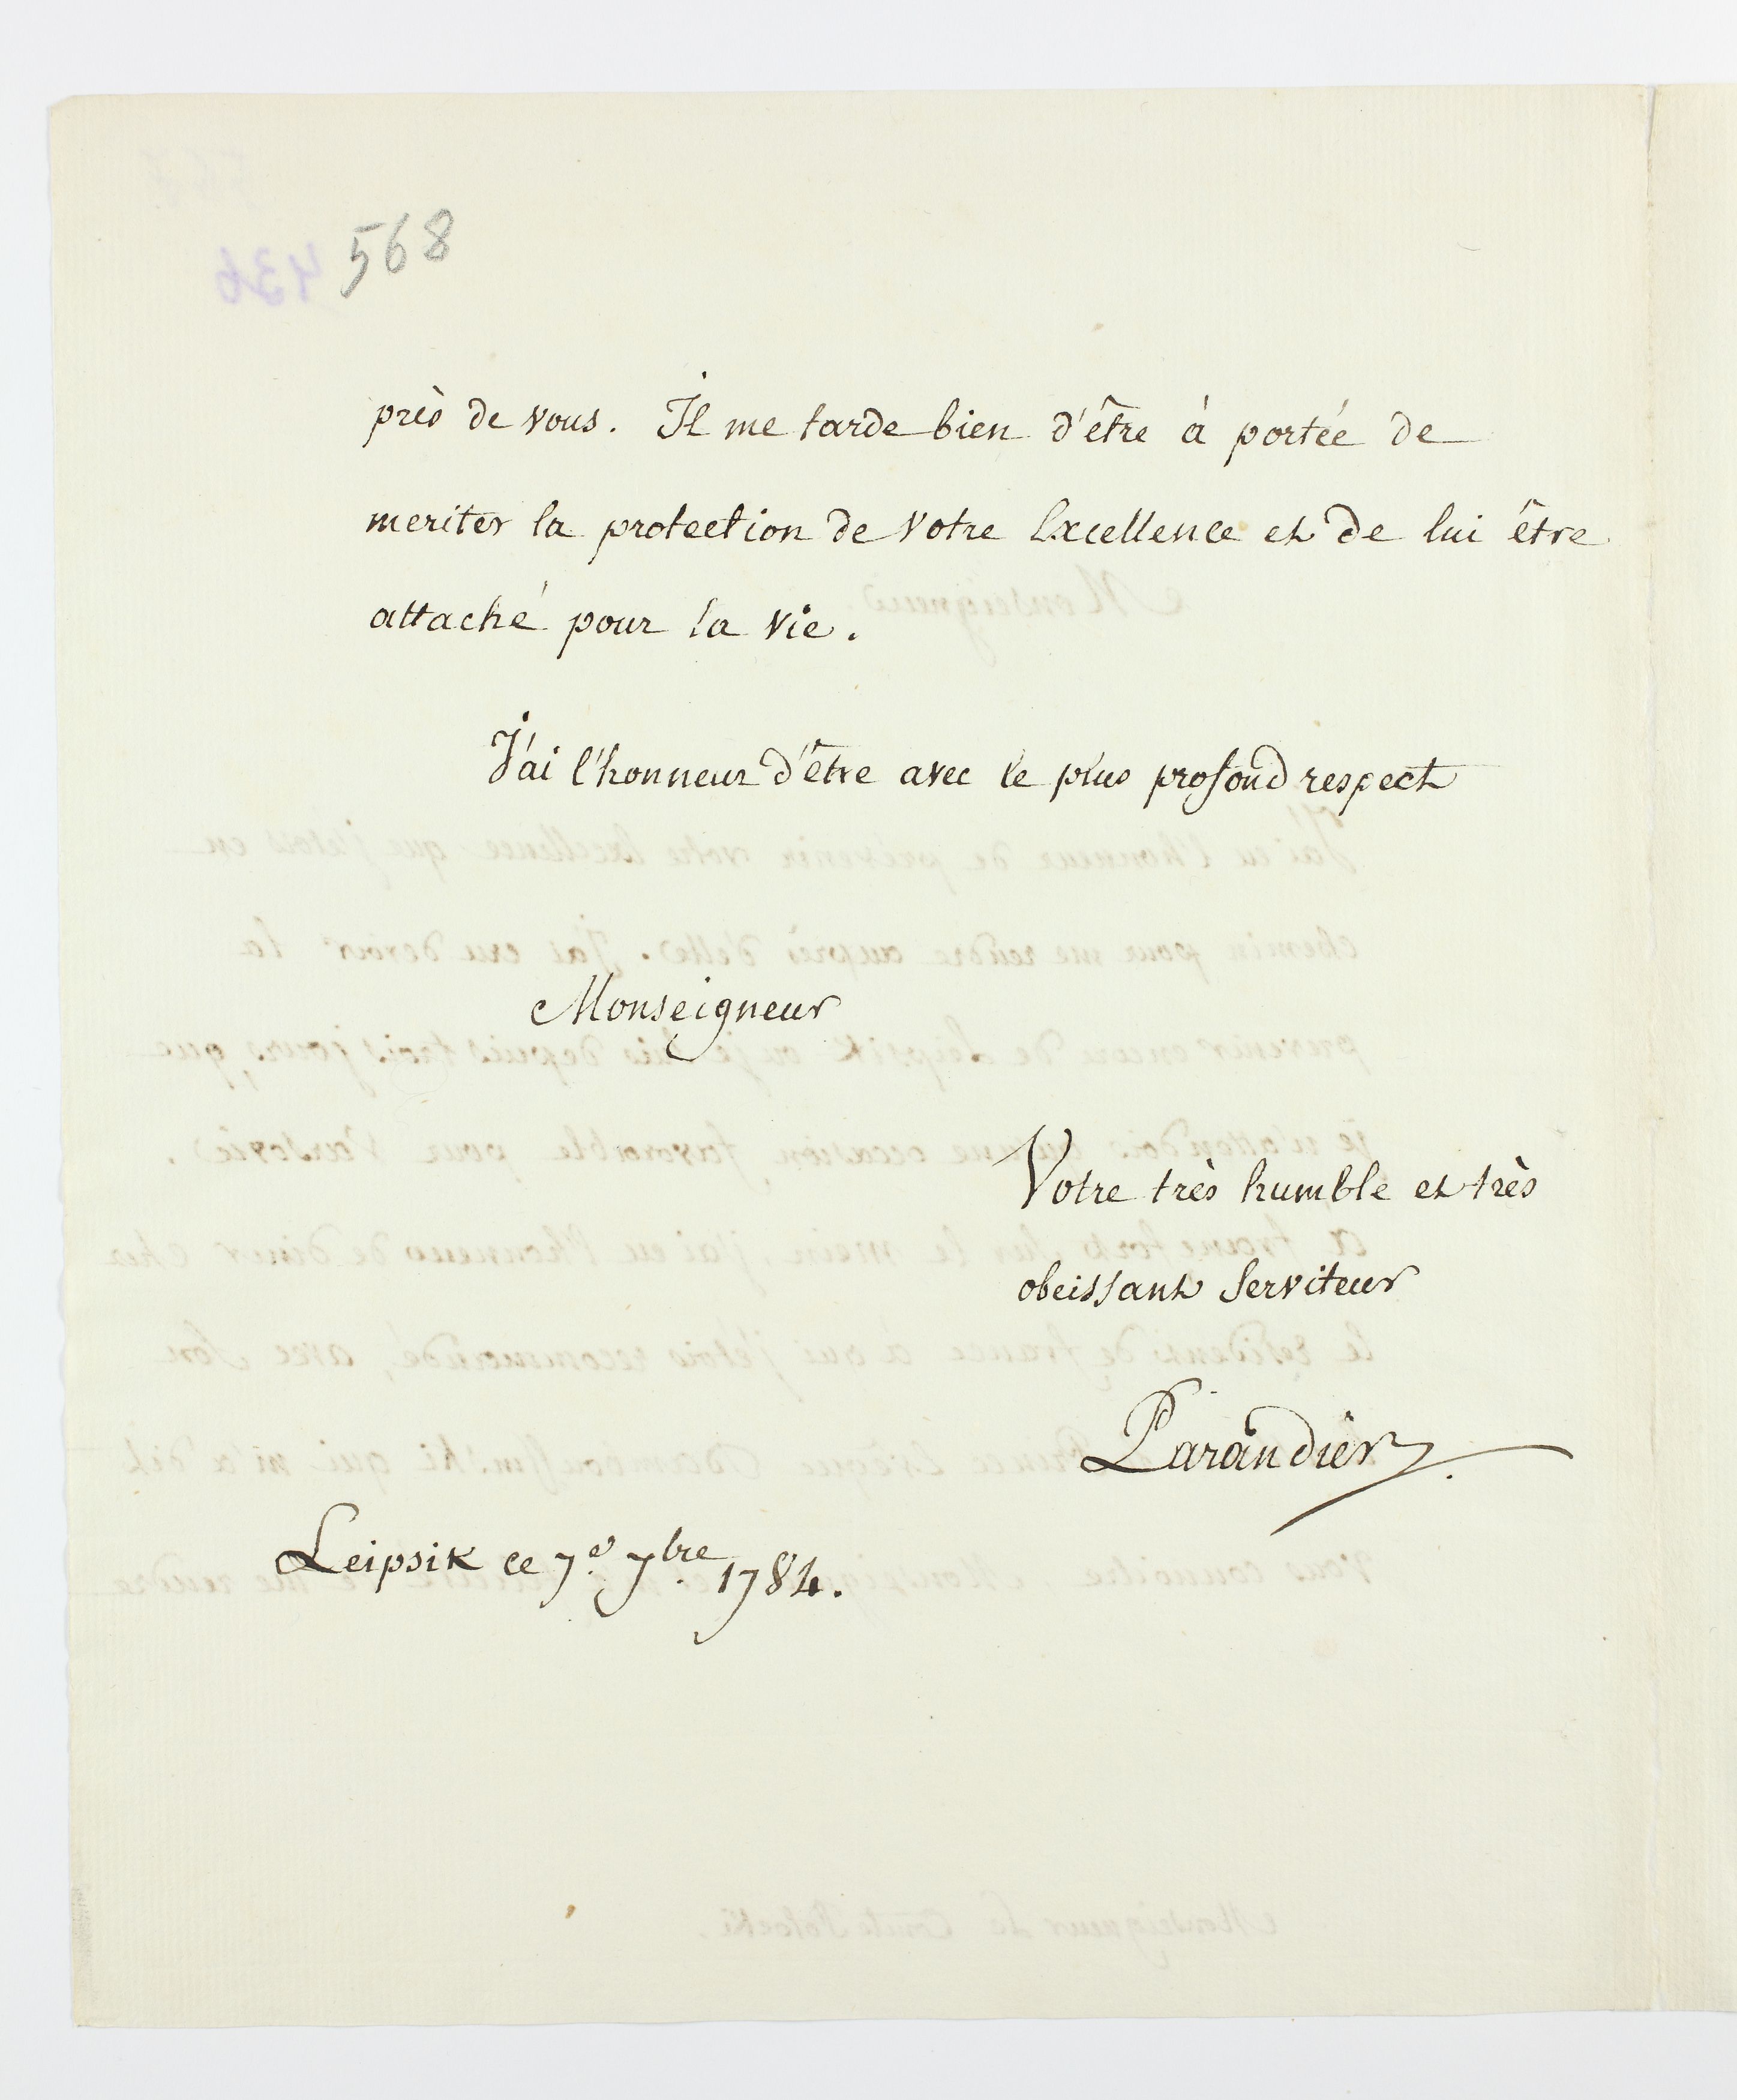 568
près de vous. Il me tarde bien d'être à portée de
meriter la protection de Votre Excellence et de lui être
attaché pour la vie.
J'ai l'honneur d'être avec le plus profond respect
Monseigneur
Votre très humble et très
obeissant Serviteur
Parandier
Leipsik ce 7e. 7bre. 1784.